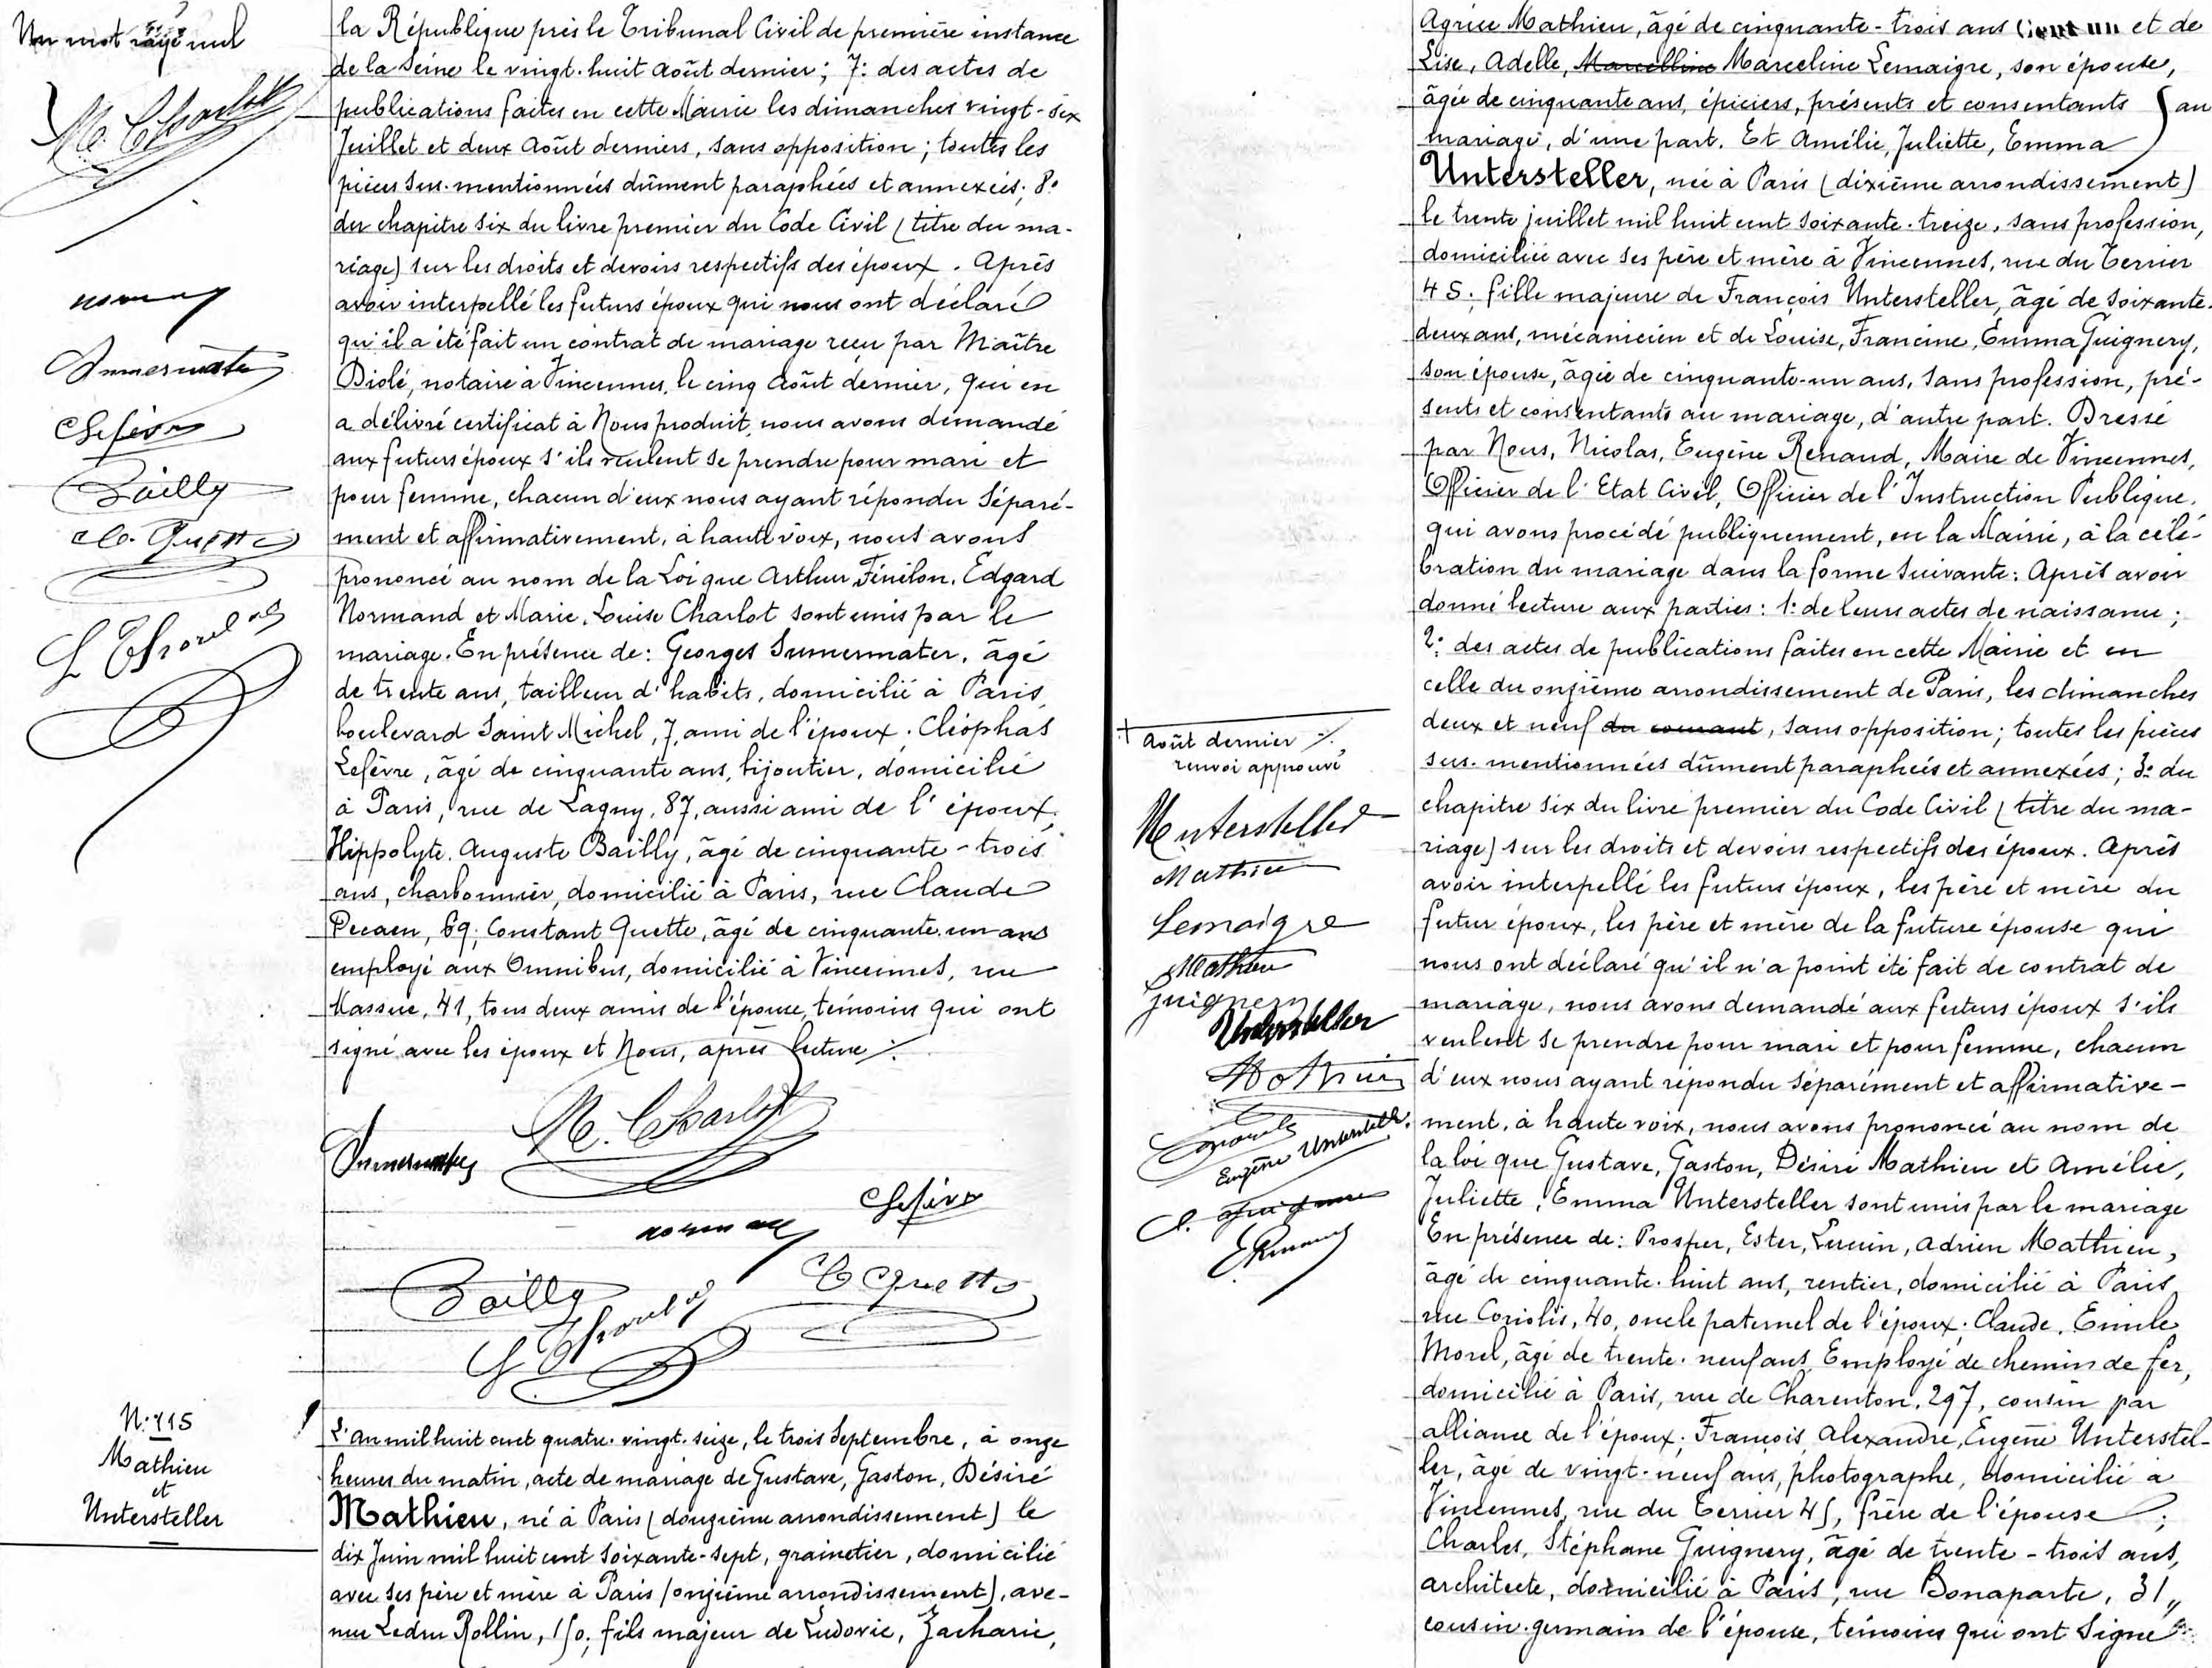 Un mot rayé nul
M. Charlot
la République près le Tribunal Civil de première instance
de la Seine le vingt-huit Août dernier; 7: des actes de
publications faites en cette Mairie les dimanches vingt-six
Juillet et deux Août derniers, sans opposition; toutes les
pièces sus-mentionnées dûment paraphées et annexées; 8:
du chapitre six du livre premier du Code Civil (titre du ma-
riage) sur les droits et devoirs respectifs des époux. Après
avoir interpellé les futurs époux qui nous ont déclaré
qu'il a été fait un contrat de mariage reçu par Maître
Diolé, notaire à Vincennes, le cinq Août dernier, qui en
a délivré certificat à Nous produit, nous avons demandé
aux futurs époux s'ils veulent se prendre pour mari et
pour femme, chacun d'eux nous ayant répondu séparé-
ment et affirmativement, à haute voix, nous avons
prononcé au nom de la Loi que Arthur, Fénélon, Edgard
Normand et Marie, Louise Charlot sont unis par le
mariage. En présence de: Georges Immermater, âgé
de trente ans, tailleur d'habits, domicilié à Paris,
boulevard Saint Michel, 7, ami de l'époux; Cléophas
Lefèvre, âgé de cinquante ans, bijoutier, domicilié
à Paris, rue de Lagny, 87, aussi ami de l'époux;
Hippolyte, Auguste Bailly, âgé de cinquante-trois
ans, charbonnier, domicilié à Paris, rue Claude
Decaen, 69; Constant Quette, âgé de cinquante-un ans
employé aux Omnibus, domicilié à Vincennes, rue
Massue, 41, tous deux amis de l'épouse, témoins qui ont
signé avec les époux et Nous, après lecture ./.
Immermater
C Lefèvre
Bailly
C. Quette
M. Charlot
Immermater
C Lefèvre
Normand
Bailly
C Quette
N: 115
Mathieu
et
Untersteller
L'an mil huit cent quatre-vingt-seize, le trois Septembre, à onze
heures du matin, acte de mariage de Gustave, Gaston, Désiré
Mathieu, né à Paris (douzième arrondissement) le
dix Juin mil huit cent soixante-sept, grainetier, domicilié
avec ses père et mère à Paris (onzième arrondissement), ave-
nue Ledru Rollin, 150; fils majeur de Ludovic, Zacharie,
Agrice Mathieu, âgé de cinquante-trois ans et de
Lise, Adelle, Marcelline Marceline Lemaigre, son épouse,
âgée de cinquante ans, épiciers, présents et consentants au
mariage, d'une part. Et Amélie, Juliette, Emma
Untersteller, née à Paris (dixième arrondissement)
le trente juillet mil huit cent soixante-treize, sans profession,
domiciliée avec ses père et mère à Vincennes, rue du Terrier
45; fille majeure de François Untersteller, âgé de soixante-
deux ans, mécanicien et de Louise, Francine, Emma Guignery,
son épouse, âgée de cinquante-un ans, sans profession, pré-
sents et consentants au mariage, d'autre part. Dressé
par Nous, Nicolas, Eugène Renaud, Maire de Vincennes,
Officier de l'Etat Civil, Officier de l'Instruction Publique,
qui avons procédé publiquement, en la Mairie, à la célé-
bration du mariage dans la forme suivante: Après avoir
donné lecture aux parties: 1: de leurs actes de naissance;
2: des actes de publications faites en cette Mairie et en
celle du onzième arrondissement de Paris, les dimanches
deux et neuf du courant, sans opposition; toutes les pièces
sus-mentionnées dûment paraphées et annexées; 3: du
chapitre six du livre premier du Code Civil (titre du ma-
riage) sur les droits et devoirs respectifs des époux. Après
avoir interpellé les futurs époux, les père et mère du
futur époux, les père et mère de la future épouse qui
nous ont déclaré qu'il n'a point été fait de contrat de
mariage, nous avons demandé aux futurs époux s'ils
veulent se prendre pour mari et pour femme, chacun
d'eux nous ayant répondu séparément et affirmative-
ment, à haute voix, nous avons prononcé au nom de
la loi que Gustave, Gaston, Désiré Mathieu et Amélie,
Juliette, Emma Untersteller sont unis par le mariage
En présence de: Prosper, Ester, Lucien, Adrien Mathieu,
âgé de cinquante-huit ans, rentier, domicilié à Paris
rue Coriolis, 40, oncle paternel de l'époux; Claude, Emile
Morel, âgé de trente-neuf ans, Employé de chemin de fer,
domicilié à Paris, rue de Charenton, 297, cousin par
alliance de l'époux; François, Alexandre, Eugène Unterstel-
ler, âgé de vingt-neuf ans, photographe, domicilié à
Vincennes, rue du Terrier 45, frère de l'épouse;
Charles, Stéphane Guignery, âgé de trente-trois ans,
architecte, domicilié à Paris, rue Bonaparte, 31,
cousin-germain de l'épouse, témoins qui ont signé
+ Août dernier ./.
renvoi approuvé
Untersteller
Mathieu
Lemaigre
Mathieu
Guignery
Untersteller
Mathieu
Eugène Untersteller
ERenaud